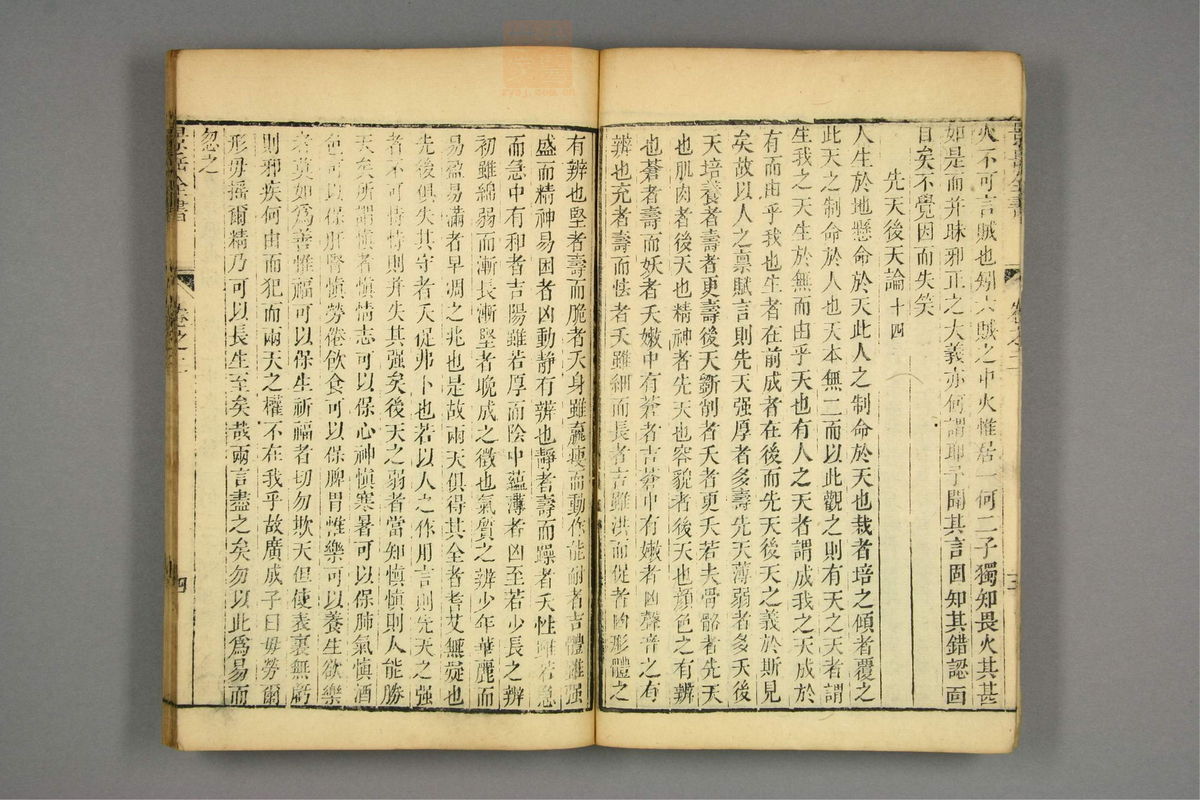 火不可言賊也矧六賊之中火惟居一何二子獨知畏火其甚
如是而并昧邪正之大義亦何謂耶予聞其言固知其錯認面
目矣不覺因而失笑
先天後天論 十四
人生於地懸命於天此人之制命於天也栽者培之傾者覆之
此天之制命於人也天本無二而以此觀之則有天之天者謂
生我之天生於無而由乎天也有人之天者謂成我之天成於
有而由乎我也生者在前成者在後而先天後天之義於斯見
矣故以人之禀賦言則先天强厚者多壽先天薄弱者多夭後
天培養者壽者更壽後天斵削者夭者更夭若夫骨骼者先天
也肌肉者後天也精神者先天也容貌者後天也顔色之有辨
也蒼者壽而妖者夭嫩中有蒼者吉蒼中有嫩者凶聲音之有
辨也充者壽而怯者夭雖細而長者吉雖洪而促者凶形體之
有辨也堅者壽而脆者夭身雖羸瘦而動作能耐者吉體雖强
盛而精神易困者凶動静有辨也靜者壽而躁者夭性雖若急
而急中有和者吉陽雖若厚而陰中蘊薄者凶至若少長之辨
初雖綿弱而漸長漸堅者晚成之徵也氣質之辨少年華麗而
易盈易滿者早凋之兆也是故兩天俱得其全者耆艾無疑也
先後俱失其守者夭促弗卜也若以人之作用言則先天之强
者不可恃恃則并失其强矣後天之弱者當知慎慎則人能勝
天矣所謂慎者慎情志可以保心神慎寒暑可以保肺氣慎酒
色可以保肝腎慎勞倦飲食可以保脾胃惟樂可以養生欲樂
者莫如爲善惟福可以保生祈福者切勿欺天但使表裏無虧
則邪疾何由而犯而兩天之權不在我乎故廣成子曰毋勞爾
形毋摇爾精乃可以長生至矣哉兩言盡之矣勿以此爲易而
忽之
景岳全書
卷之二